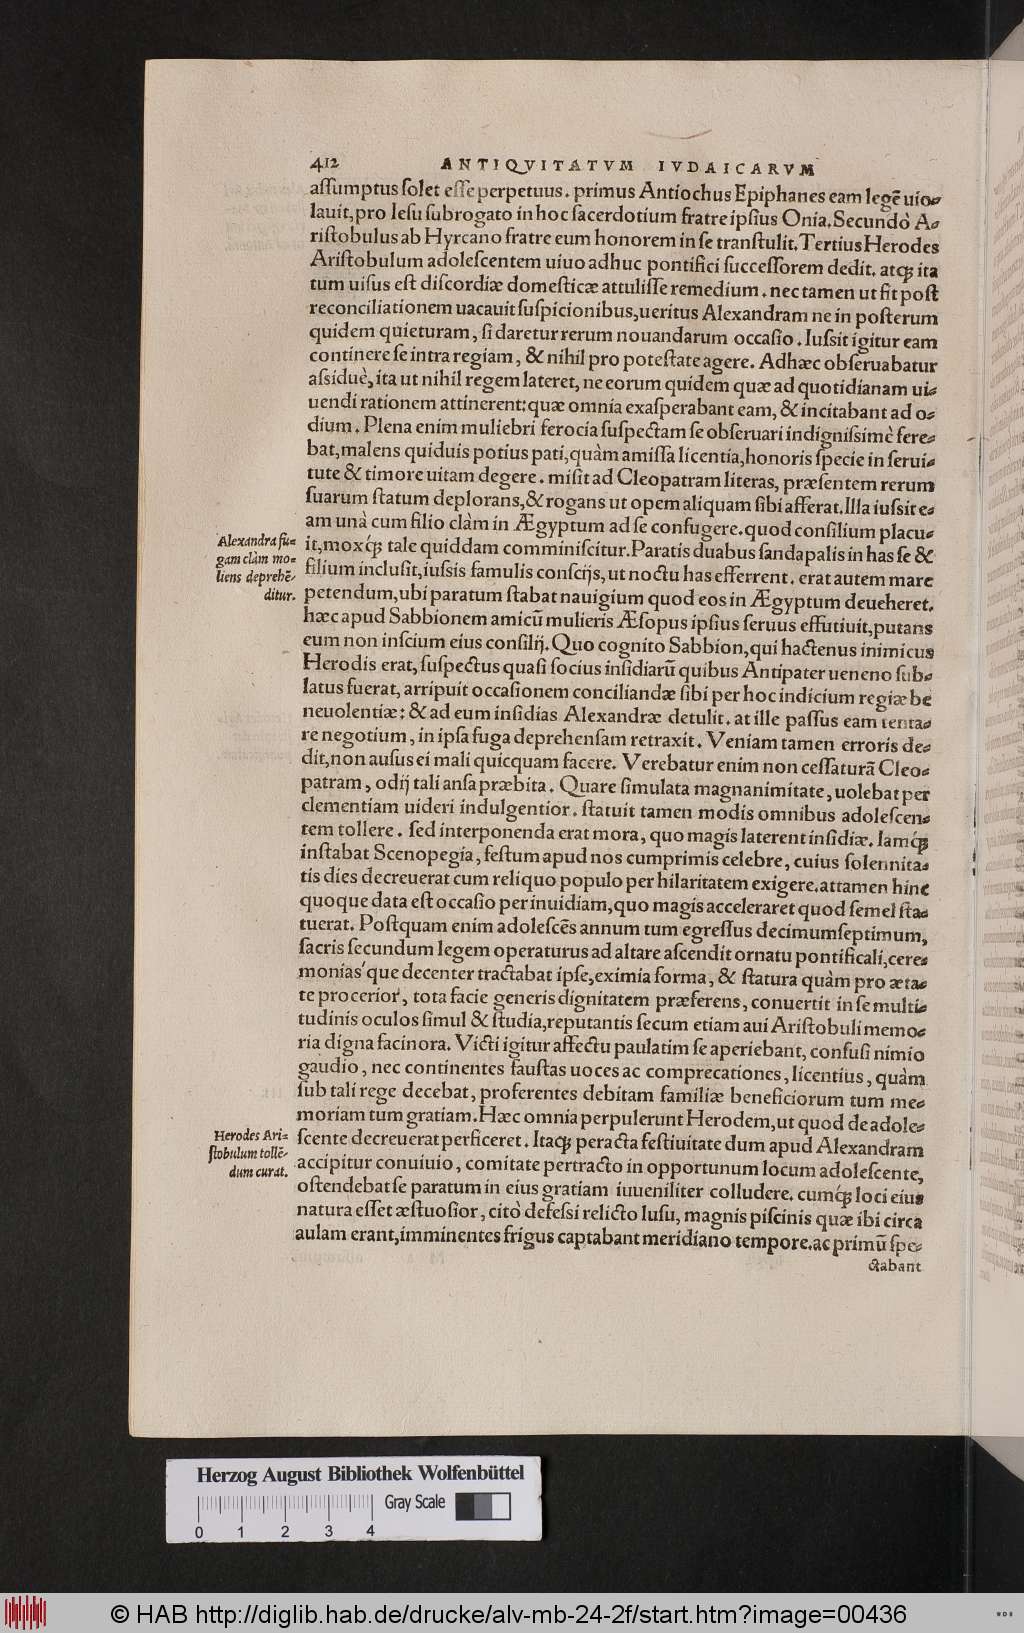 412 ANTIQVITATVM IVDAICARVM
aſſumptus ſolet eſſe perpetuus. primus Antiochus Epiphanes eam legē uio-
lauit, pro Ieſu ſubrogato in hoc ſacerdotium fratre ipſius Onia. Secundò A-
riſtobulus ab Hyrcano fratre eum honorem in ſe tranſtulit. Tertius Herodes
Ariſtobulum adoleſcentem uiuo adhuc pontifici ſucceſſorem dedit. atq́ꝫ ita
tum uiſus eſt diſcordiæ domeſticæ attuliſſe remedium. nec tamen ut fit poſt
reconciliationem uacauit ſuſpicionibus, ueritus Alexandram ne in poſterum
quidem quieturam, ſi daretur rerum nouandarum occaſio. Iuſsit igitur eam
continere ſe intra regiam, & nihil pro poteſtate agere. Adhæc obſeruabatur
aſsiduè, ita ut nihil regem lateret, ne eorum quidem quæ ad quotidianam ui-
uendi rationem attinerent: quæ omnia exaſperabant eam, & incitabant ad o-
dium. Plena enim muliebri ferocia ſuſpectam ſe obſeruari indigniſsimè fere-
bat, malens quiduis potius pati, quàm amiſſa licentia, honoris ſpecie in ſerui-
tute & timore uitam degere. miſit ad Cleopatram literas, præſentem rerum
ſuarum ſtatum deplorans, & rogans ut opem aliquam ſibi afferat. Illa iuſsit e-
am unà cum filio clàm in Ægyptum ad ſe confugere. quod conſilium placu-
Alexandra fu-
gam clàm mo-
liens deprehē-
ditur.
it, moxq́ꝫ tale quiddam comminiſcitur. Paratis duabus ſandapalis in has ſe &
filium incluſit, iuſsis famulis conſcijs, ut noctu has efferrent. erat autem mare
petendum, ubi paratum ſtabat nauigium quod eos in Ægyptum deueheret.
hæc apud Sabbionem amicū mulieris Æſopus ipſius ſeruus effutiuit, putans
eum non inſcium eius conſilij. Quo cognito Sabbion, qui hactenus inimicus
Herodis erat, ſuſpectus quaſi ſocius inſidiarū quibus Antipater ueneno ſub-
latus fuerat, arripuit occaſionem conciliandæ ſibi per hoc indicium regiæ be
neuolentiæ: & ad eum inſidias Alexandræ detulit. at ille paſſus eam tenta-
re negotium, in ipſa fuga deprehenſam retraxit. Veniam tamen erroris de-
dit, non auſus ei mali quicquam facere. Verebatur enim non ceſſaturā Cleo-
patram, odij tali anſa præbita. Quare ſimulata magnanimitate, uolebat per
clementiam uideri indulgentior. ſtatuit tamen modis omnibus adoleſcen-
tem tollere. ſed interponenda erat mora, quo magis laterent inſidiæ. Iamq́ꝫ
inſtabat Scenopegia, feſtum apud nos cumprimis celebre, cuius ſolennita-
tis dies decreuerat cum reliquo populo per hilaritatem exigere. attamen hinc
quoque data eſt occaſio per inuidiam, quo magis acceleraret quod ſemel ſta-
tuerat. Poſtquam enim adoleſcēs annum tum egreſſus decimumſeptimum,
ſacris ſecundum legem operaturus ad altare aſcendit ornatu pontificali, cere-
monias que decenter tractabat ipſe, eximia forma, & ſtatura quàm pro æta-
te procerior, tota facie generis dignitatem præferens, conuertit in ſe multi-
tudinis oculos ſimul & ſtudia, reputantis ſecum etiam aui Ariſtobuli memo-
ria digna facinora. Victi igitur affectu paulatim ſe aperiebant, confuſi nimio
gaudio, nec continentes fauſtas uoces ac comprecationes, licentius, quàm
ſub tali rege decebat, proferentes debitam familiæ beneficiorum tum me-
moriam tum gratiam. Hæc omnia perpulerunt Herodem, ut quod de adole-
Herodes Ari-
ſtobulum tollē-
dum curat.
ſcente decreuerat perficeret. Itaq́ꝫ peracta feſtiuitate dum apud Alexandram
accipitur conuiuio, comitate pertracto in opportunum locum adoleſcente,
oſtendebat ſe paratum in eius gratiam iuueniliter colludere. cumq́ꝫ loci eius
natura eſſet æſtuoſior, citò defeſsi relicto luſu, magnis piſcinis quæ ibi circa
aulam erant, imminentes frigus captabant meridiano tempore. ac primū ſpe-
ctabant
Herzog August Bibliothek Wolfenbüttel
Gray Scale
0 1 2 3 4
© HAB http://diglib.hab.de/drucke/alv-mb-24-2f/start.htm?image=00436